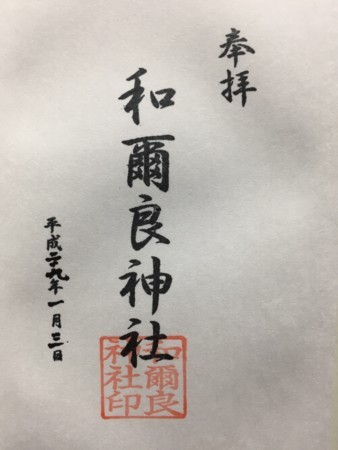 奉拝
和爾良神社
和爾良
神社印
平成二十九年一月三日